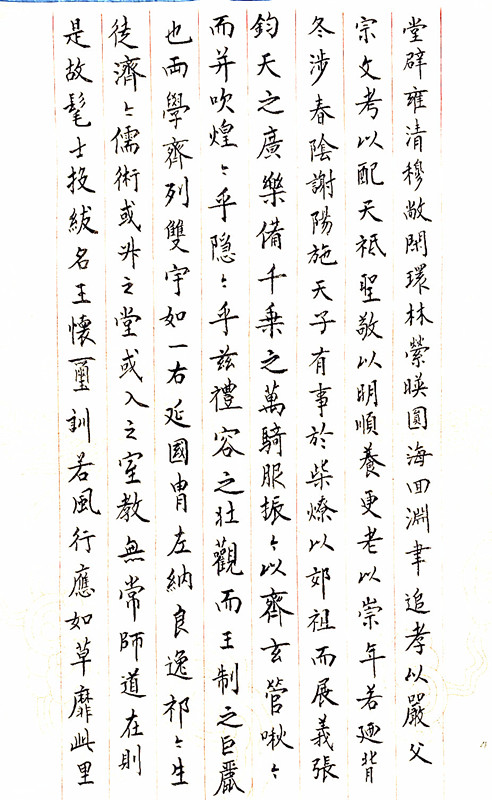 堂辟雍清穆敞閑環林縈暎圓海回淵聿追孝以嚴父
宗文考以配天祗聖敬以明順養更老以崇年若廼背
冬涉春陰謝陽施天子有事於柴燎以郊祖而展義張
鈞天之廣樂備千乗之萬騎服振〻以齊玄管啾〻
而并吹煌〻乎隐〻乎兹禮容之壯觀而王制之巨麗
也两學齊列雙宇如一右延國胄左納良逸祁〻生
徒濟〻儒術或升之堂或入之室教無常師道在則
是故髦士投紱名王懷璽訓若風行應如草靡此里